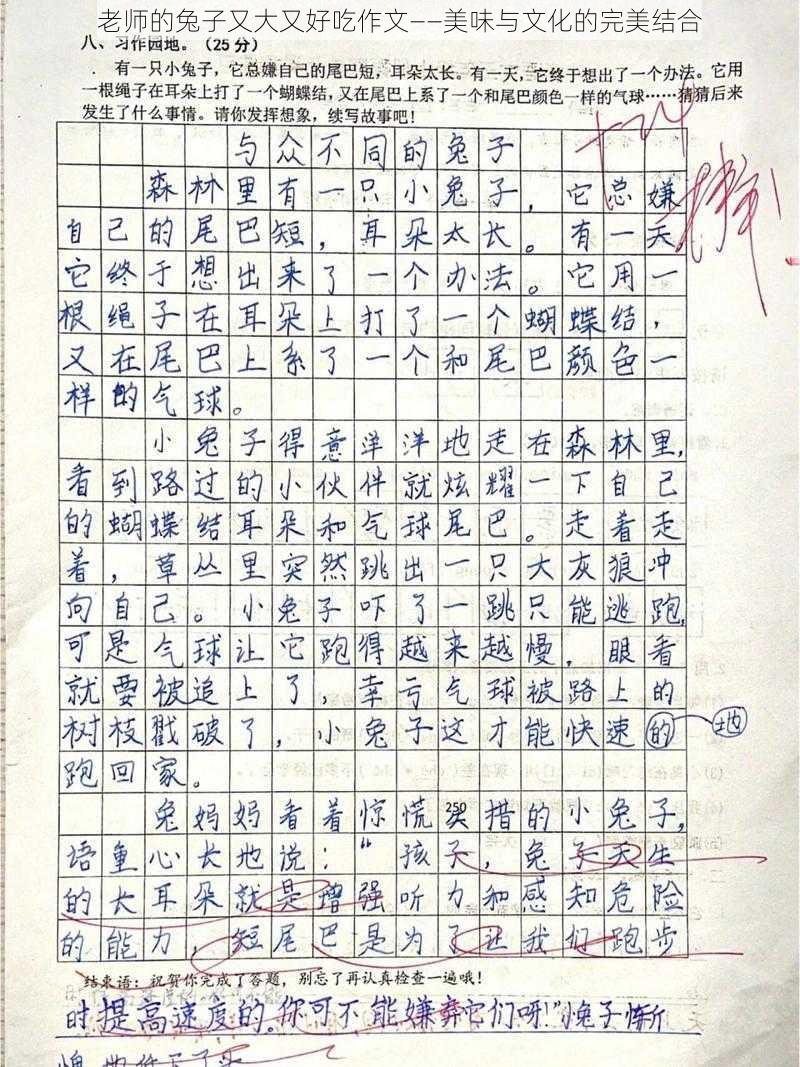 老师的兔子又大又好吃作文——美味与文化的完美结合
八、习作园地。（25分）
有一只小兔子，它总嫌自己的尾巴短，耳朵太长。有一天，它终于想出了一个办法。它用
一根绳子在耳朵上打了一个蝴蝶结，又在尾巴上系了一个和尾巴颜色一样的气球……猜猜后来
发生了什么事情。请你发挥想象，续写故事吧！
与众不同的兔子
森林里有一只小兔子，它总嫌
自己的尾巴短，耳朵太长。有一天
它终于想出来了一个办法。它用一
根绳子在耳朵上打了一个蝴蝶结，
又在尾巴上系了一个和尾巴颜色一
样的气球。
小兔子得意洋洋地走在森林里，
看到路过的小伙伴就炫耀一下自己
的蝴蝶结耳朵和气球尾巴。走着走
着，草丛里突然跳出一只大灰狼冲
向自己。小兔子吓了一跳只能逃跑，
可是气球让它跑得越来越慢，眼看
就要被追上了，幸亏气球被路上的
树枝戳破了，小兔子这才能快速的 地
跑回家。
兔妈妈看着惊慌失措的小兔子，
250
语重心长地说：“孩子，兔子天生
的长耳朵就是增强听力和感知危险
的能力，短尾巴是为了让我们跑步
结束语：祝贺你完成了答题，别忘了再认真检查一遍哦！
时提高速度的。你可不能嫌弃它们呀！”小兔子惭
愧地低下了头